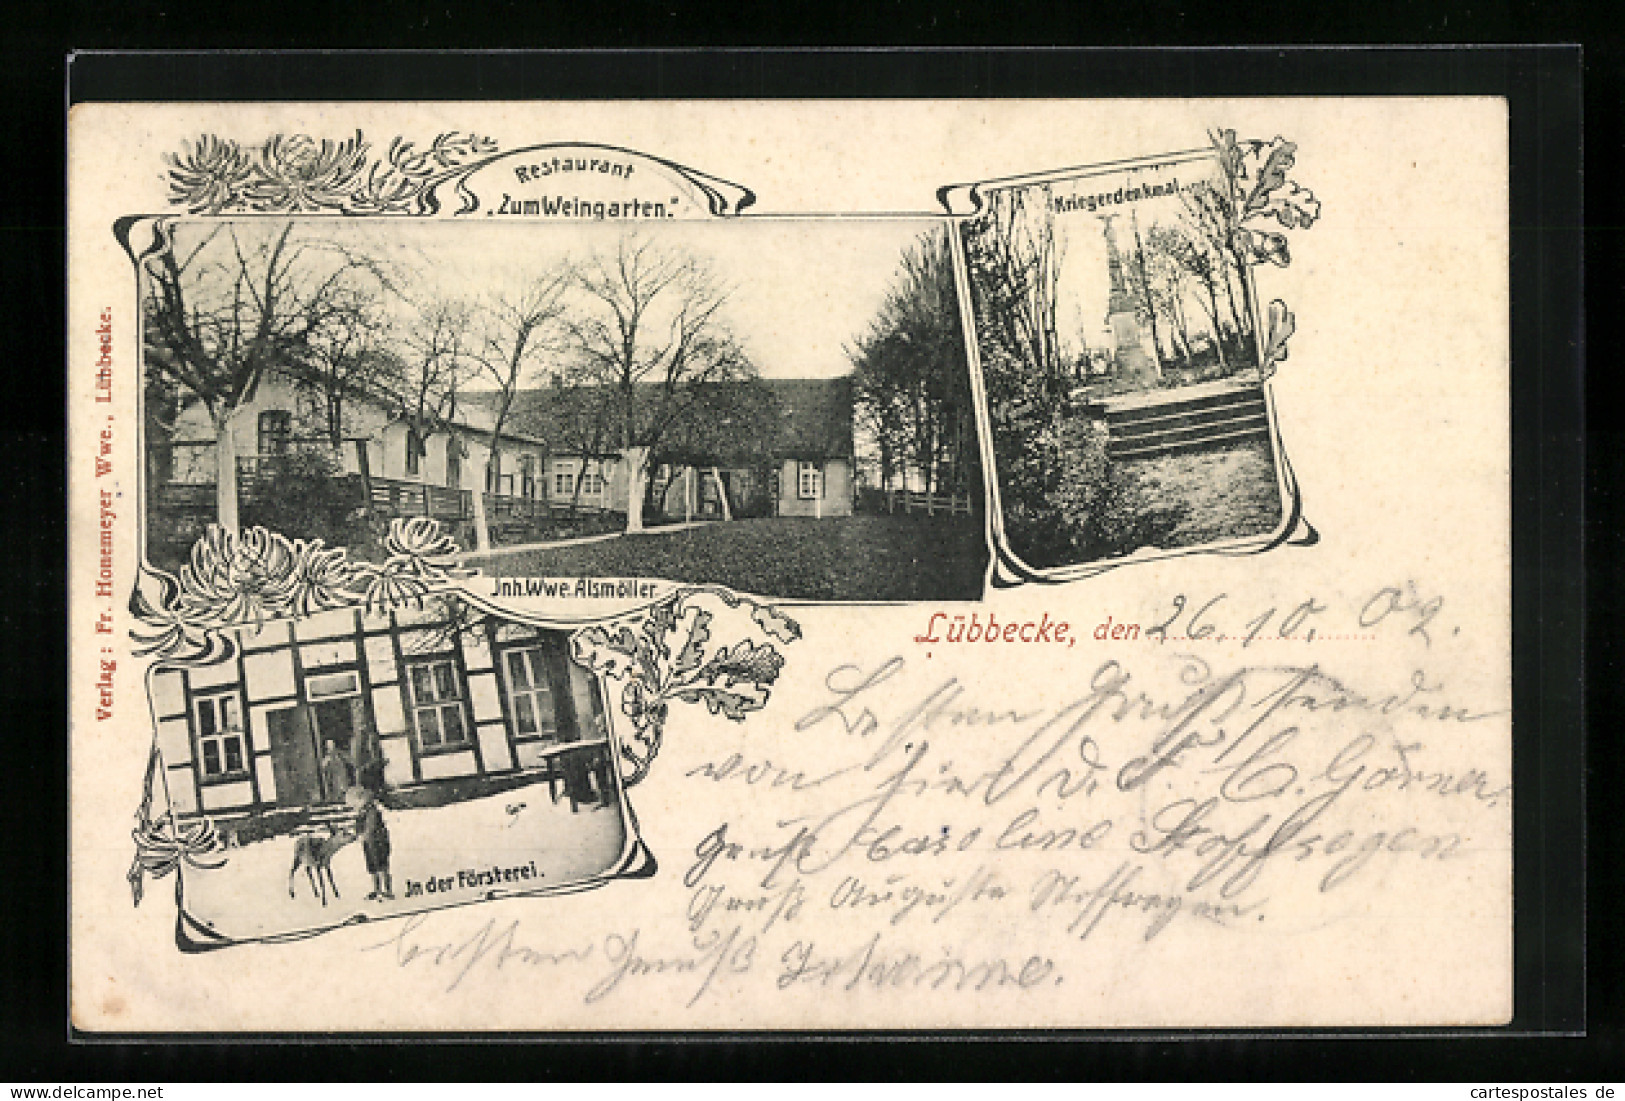 Restaurant
„Zum Weingarten."
Kriegerdenkmal
Jnh. Wwe. Alsmöller
Jn der Försterei.
Verlag: Fr. Honemeyer Wwe., Lübbecke.
Lübbecke, den 26. 10. 02.
Besten Gruß senden
von hier d. F. C. Görner,
Gruß Caroline
Gruß Auguste
besten Gruß Johanne.
cartespostales de